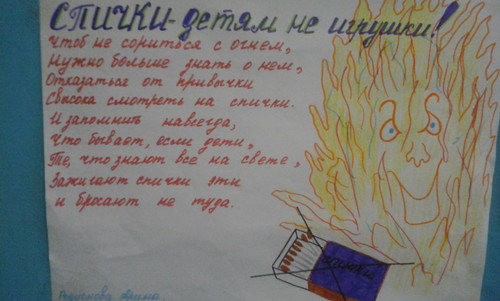 СПИЧКИ - ДЕТЯМ НЕ ИГРУШКИ!
Чтоб не сориться с огнем,
Нужно больше знать о нем,
Отказаться от привычки
Свысока смотреть на спички.
И запомнить навсегда,
Что бывает, если дети,
Те, что знают все на свете,
Зажигают спички эти
и бросают не туда.